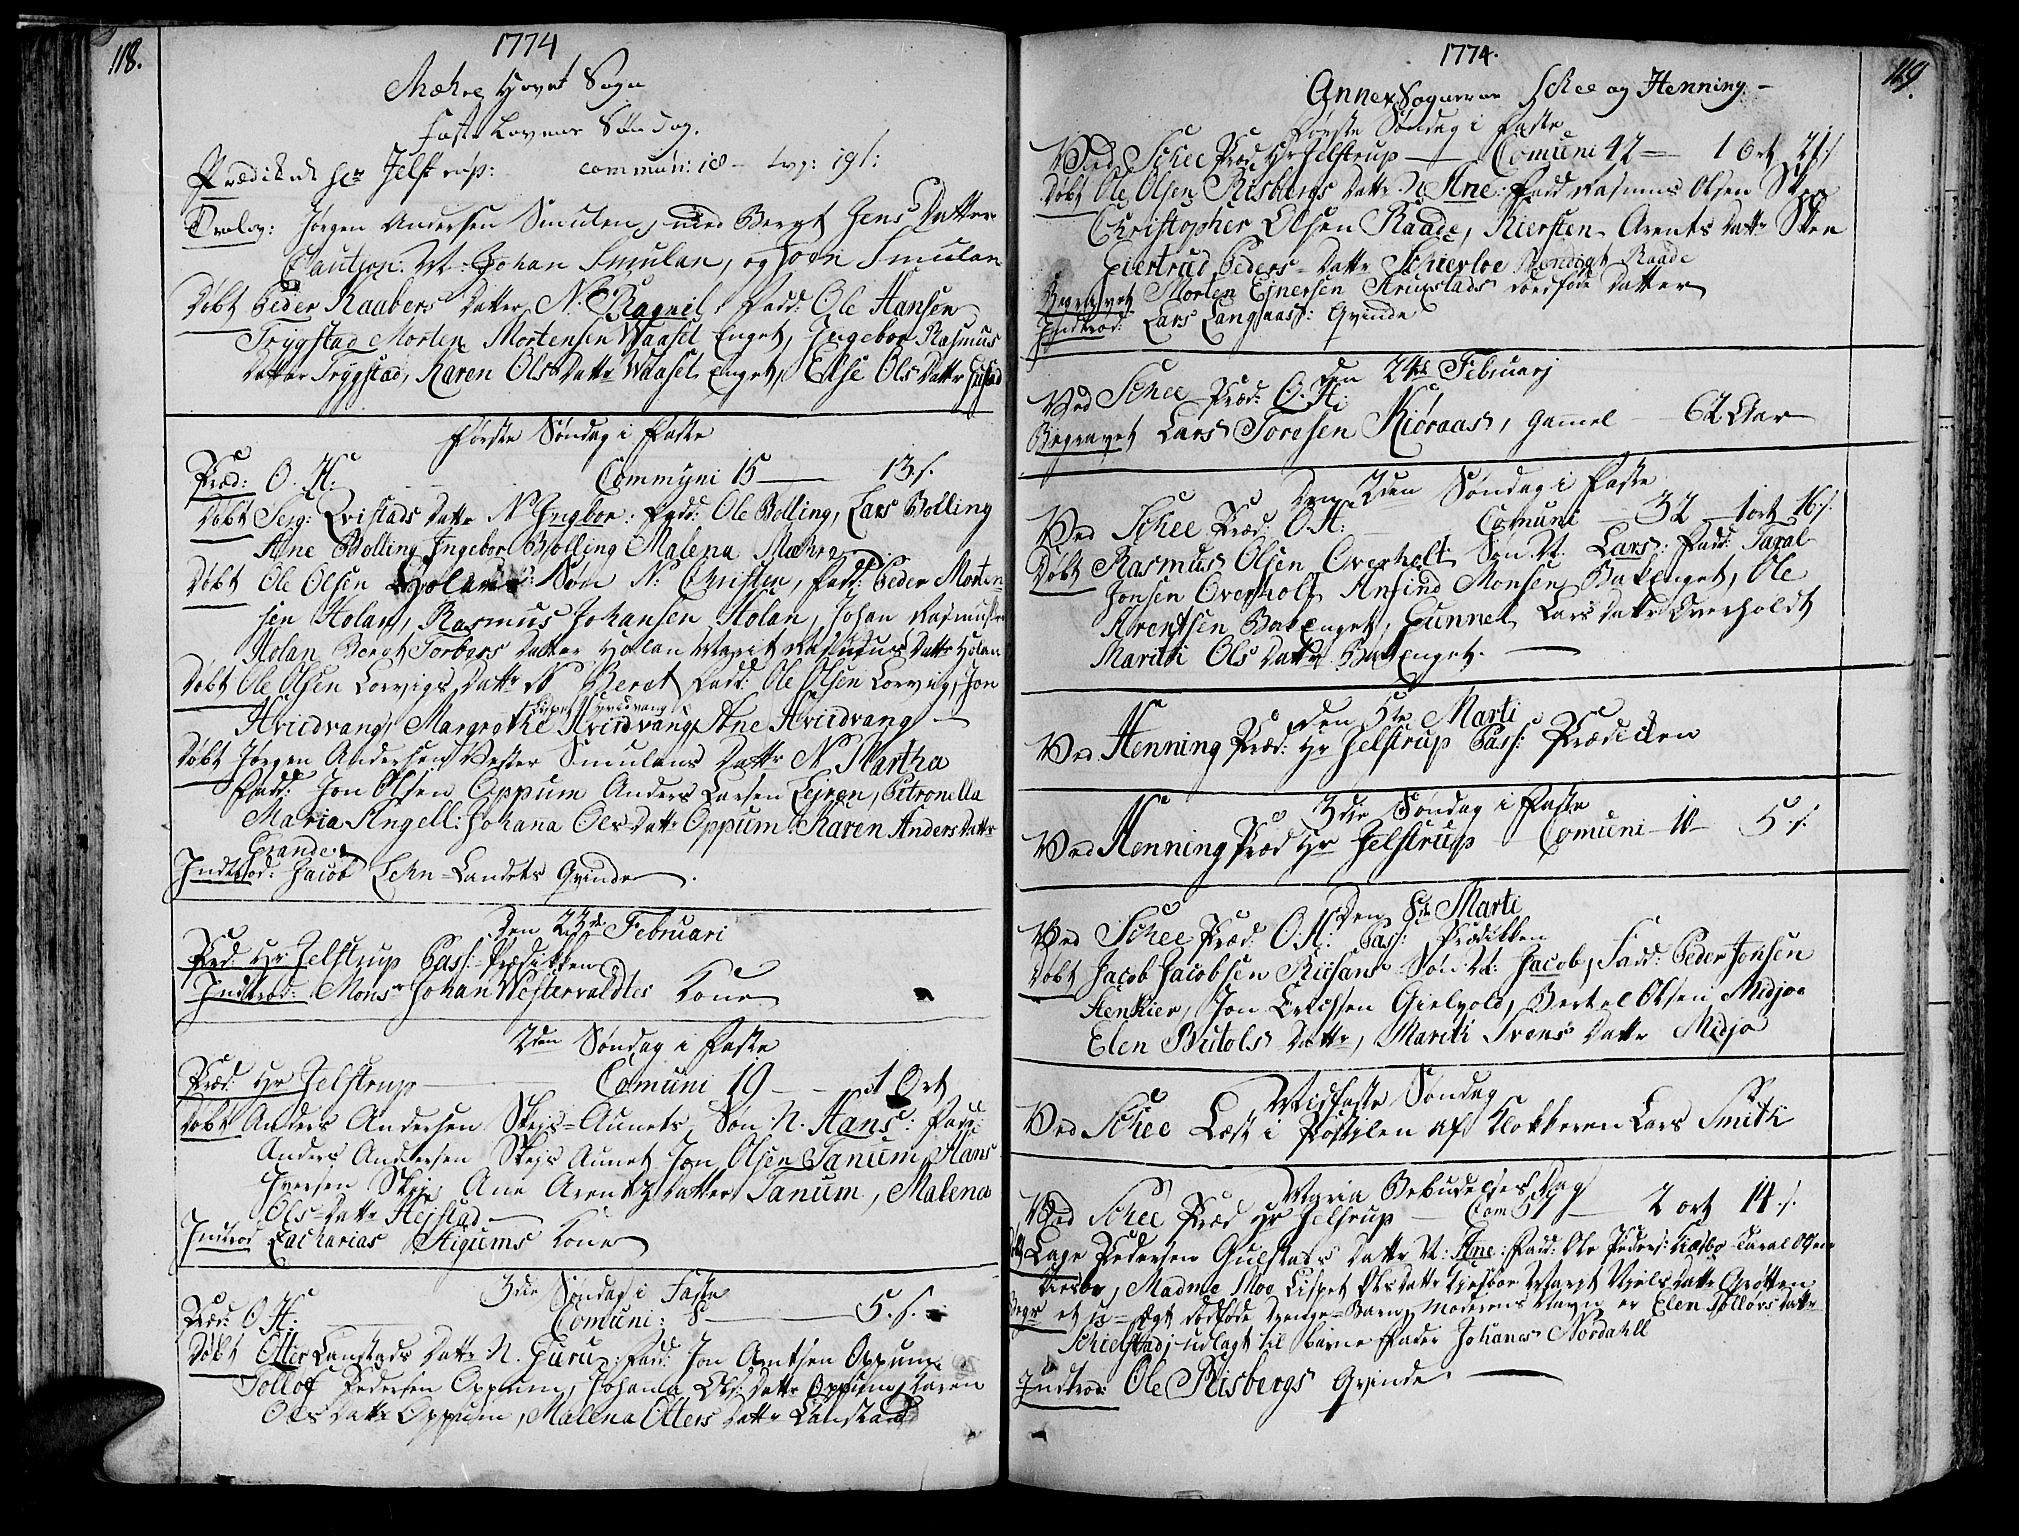 118.
1774
Mæhre Hovet Sogn
Fastelavens Søndag.
Prædiked Hr Jelstrup: commun: 18 - 19 s:
Trolov: Jørgen Andersen Smulen, med Beret Jens Datter
Caution: Johan Smulan, og Joen Smulan
Døbt Peder Raabers Datter N: Ragnil, Fadd: Ole Hansen
Trygstad Morten Mortensen Waasel Enget, Ingebor Rasmus
Datter Trygstad, Karen Ols Datter Waasel Enget, Else Ols Datter
Første Søndag i Faste
Præd: O. H: Communi 15 — 13 s.
Døbt Qvistads Datter N Ingbor: Fadd: Ole Bolling, Lars Bolling
Ane Bolling Ingebor Bolling Malena Mæhre
Døbt Ole Olsen Holans Søn N: Christen, Fadd: Peder Morten
sen Holan, Rasmus Johansen Holan, Johan Rasmusen
Holan Beret Torbers Datter Holan Marit Rasmus Datter Holan
Døbt Ole Olsen Lorvigs Datter N Beret Fadd: Ole Olsen Lorvig, Jon
Hvidvang Margrethe Hvidvang, Ane Hvidvang
Døbt Jørgen Andersen Vester Smulans Datter N Martha
Fadd: Jon Olsen Oppum Anders Larsen Lejren, Petronella
Maria Angell: Johana Ols Datter Oppum Karen Anders Datter
Grande.
Indtrod: Jacob Lehn-Landets Qvinde.
Den 23de Februari
Præd Hr Jelstrup Pass: Prædikken
Indtrod: Monsr Johan Westervaldtes Kone
2den Søndag i Faste
Præd: Hr Jelstrup — Comuni 19 — 1 Ort
Døbt Anders Andersen Skejs-Aunets Søn N. Hans: Fadd:
Anders Andersen Skejs Aunet Jon Olsen Tanum, Hans
Iversen Skeje Ane Arentz Datter Tanum, Malena
Ols-Datter Hejstad
Indtrod Zacharias Aigums Kone
3die Søndag i Faste
Præd: O. H: Comuni: 8 — 5. s.
Døbt Otter Lanstads Datter N. Guru: Fadd: Jon Arntsen Oppum
Tollof Pedersen Oppum, Johanna Ols: Datter Oppum, Karen
Ols Datter Oppum, Malena Otters Datter Lanstad
119.
1774.
Annex Sognerne Schee og Henning
Første Søndag i Faste
Ved Schee Præd Hr Jelstrup — Comuni 42 — 1 Ort 21 s
Døbt Ole Olsen Risbergs Datter N Ane: Fadd Rasmus Olsen Skee
Christopher Olsen Raade, Kiersten Arents Datter Skee
Giertrud Peders-Datter Schierloe Raade
Begravet Morten Ejnersen Krugstads dødføde Datter
Indtrod: Lars Langaass: Qvinde
Den 24de Februarj
Ved Schee Præd: O. H:
Begravet Lars Toresen Kiøraas, gamel — 62 Aar
Den 2den Søndag i Faste
Ved Schee Præd: O. H: Comuni — 32 — 1 ort 16 s.
Døbt Rasmus Olsen Overholt Søn N. Lars: Fadd: Taral
Jonsen Overholt Anfind Monsen Bakenget, Ole
Arentsen Bakenget, Gunnel Lars Datter Overholdt
Maritti Ols Datter Bakenget.
Den 3te Marti
Ved Henning Præd: Hr Jelstrup Pass: Prædicken
3die Søndag i Faste
Ved Henning Præd Hr Jelstrup Comuni - 10 - 5. s.
Den 8de Marti
Ved Schee Præd: O. H: Pass: Prædikken
Døbt Jacob Jacobsen Riisans Søn N: Jacob, Fadd: Peder Jonsen
Stenkier, Jon Erichsen Gielvold, Bertel Olsen Midjo
Elen Butols Datter, Mariti Svens Datter Midjo
Midfaste Søndag
Ved Schee Læst i Postilen af Klokkeren Lars Smith
Maria Bebudelses Dag
Ved Schee Præd Hr Jelstrup — Com 57 — 2 ort 14 s.
Døbt Lage Pedersen Gulstads Datter N: Ane: Fadd: Ole Peders: Kiesbo Taral Olsen
Kiesbo, Madme Moe Lispet Ols Datter Kiesboe Marit Niels Datter Grøtten
Begr et u-Egt dødføde Drenge-Barn, Moderens Navn er Elen Tollovs Datter
Schielstad, udlagt til barne Fader Johanes Nordahll
Indtrod: Ole Risbergs Qvinde.